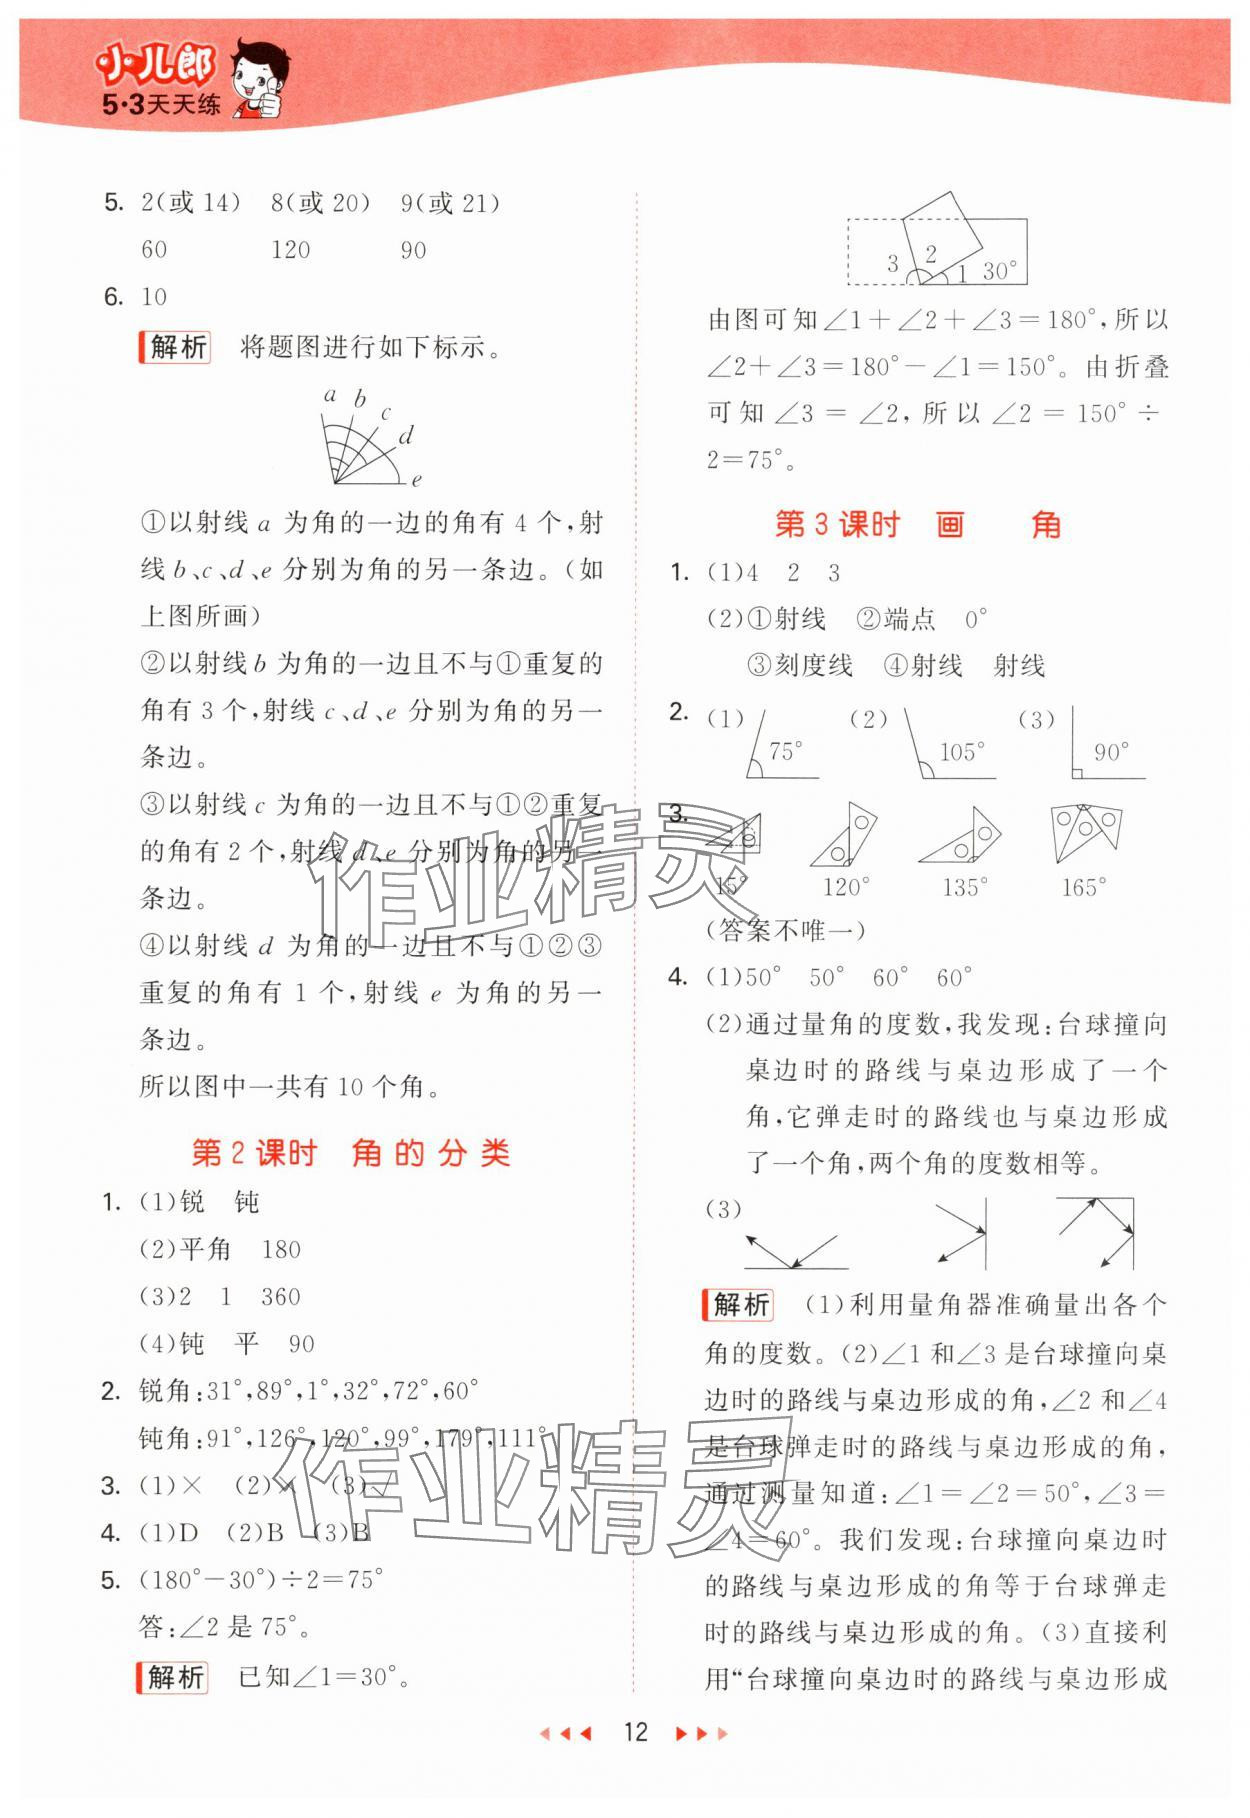 小儿郎
5·3天天练
5. 2(或 14) 8(或 20) 9(或 21)
60 120 90
6. 10
解析 将题图进行如下标示。
a b c d e
①以射线 a 为角的一边的角有 4 个,射
线 b、c、d、e 分别为角的另一条边。(如
上图所画)
②以射线 b 为角的一边且不与①重复的
角有 3 个,射线 c、d、e 分别为角的另一
条边。
③以射线 c 为角的一边且不与①②重复
的角有 2 个,射线 d、e 分别为角的另一
条边。
④以射线 d 为角的一边且不与①②③
重复的角有 1 个,射线 e 为角的另一
条边。
所以图中一共有 10 个角。
第 2 课时 角的分类
1. (1)锐 钝
(2)平角 180
(3)2 1 360
(4)钝 平 90
2. 锐角:31°,89°,1°,32°,72°,60°
钝角:91°,126°,120°,99°,179°,111°
3. (1)× (2)× (3)√
4. (1)D (2)B (3)B
5. (180°-30°)÷2=75°
答:∠2 是 75°。
解析 已知∠1=30°。
3 2 1 30°
由图可知∠1+∠2+∠3=180°,所以
∠2+∠3=180°-∠1=150°。由折叠
可知∠3=∠2,所以∠2=150°÷
2=75°。
第 3 课时 画 角
1. (1)4 2 3
(2)①射线 ②端点 0°
③刻度线 ④射线 射线
2. (1) 75° (2) 105° (3) 90°
3.
15° 120° 135° 165°
(答案不唯一)
4. (1)50° 50° 60° 60°
(2)通过量角的度数,我发现:台球撞向
桌边时的路线与桌边形成了一个
角,它弹走时的路线也与桌边形成
了一个角,两个角的度数相等。
(3)
解析 (1)利用量角器准确量出各个
角的度数。(2)∠1 和∠3 是台球撞向桌
边时的路线与桌边形成的角,∠2 和∠4
是台球弹走时的路线与桌边形成的角,
通过测量知道:∠1=∠2=50°,∠3=
∠4=60°。我们发现:台球撞向桌边时
的路线与桌边形成的角等于台球弹走
时的路线与桌边形成的角。(3)直接利
用“台球撞向桌边时的路线与桌边形成
作业精灵
作业精灵
12